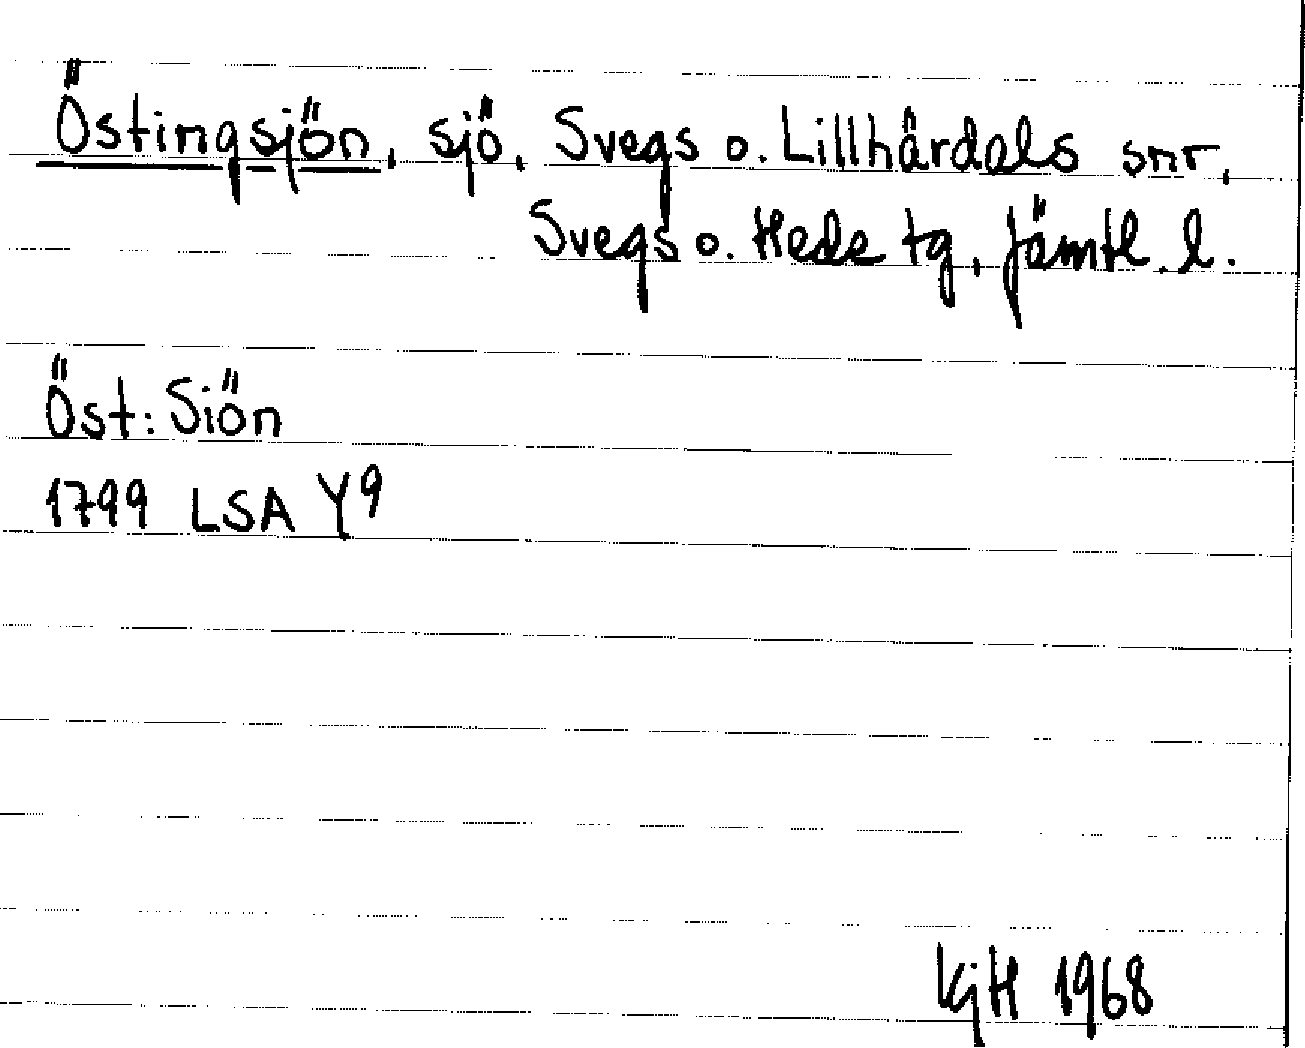 Östingsjön, sjö, Svegs o. Lillhårdals snr,
Svegs o. Heds tg, Jämtl. l.
Öst: Siön
1799 LSA Y9
KjH 1968